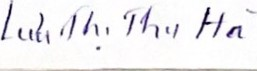 Lưu Thị Thu Hà